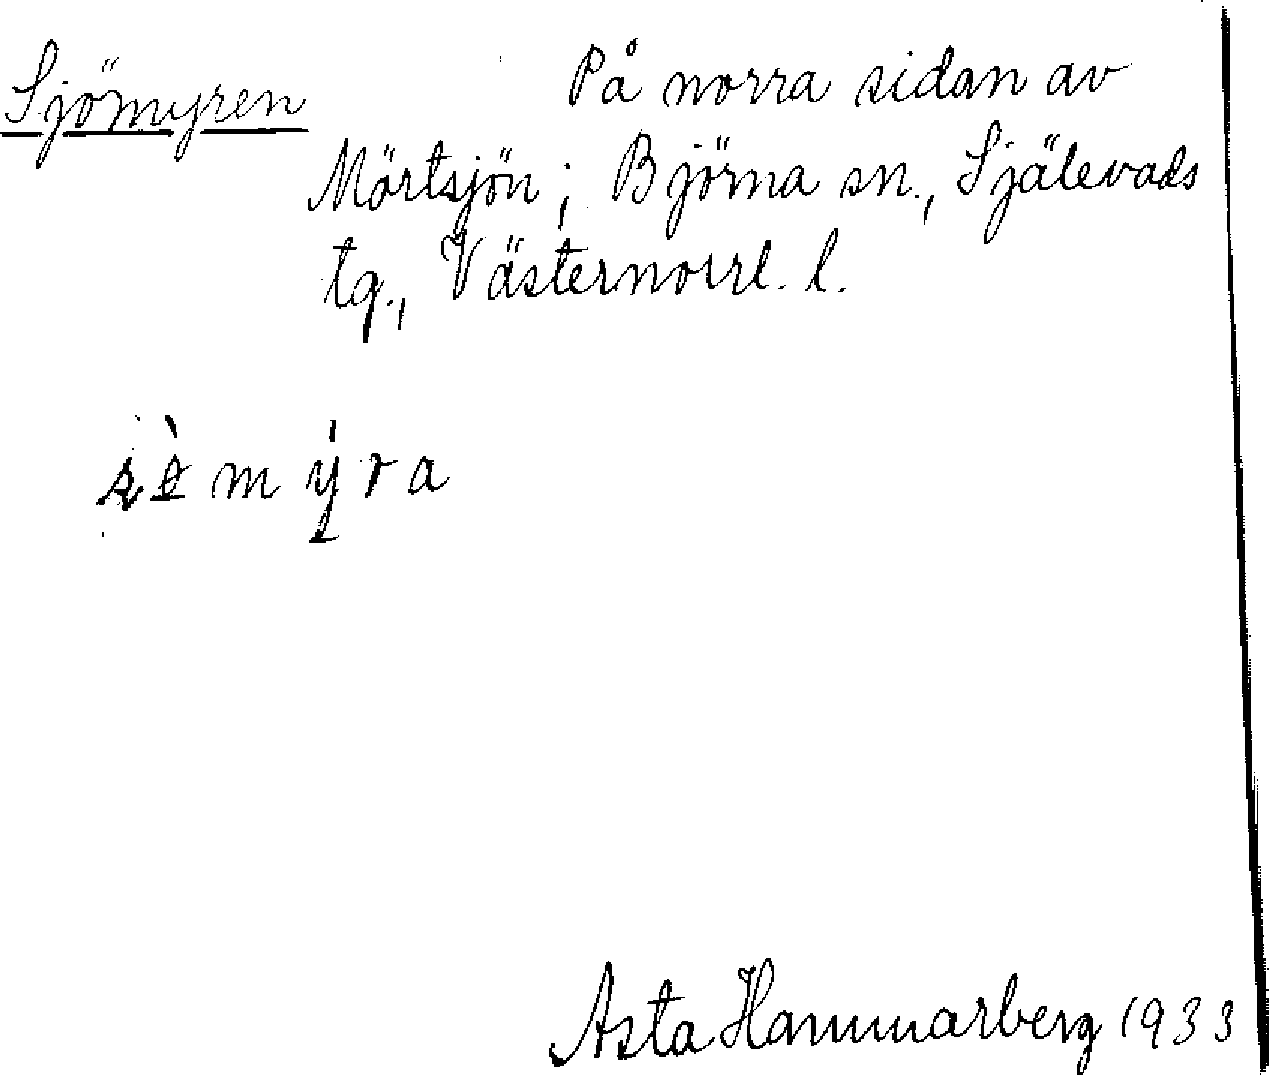 Sjömyren På norra sidan av
Mörtsjön; Björna sn., Själevads
tg., Västernorrl. l.
myra
Asta Hammarberg 1933